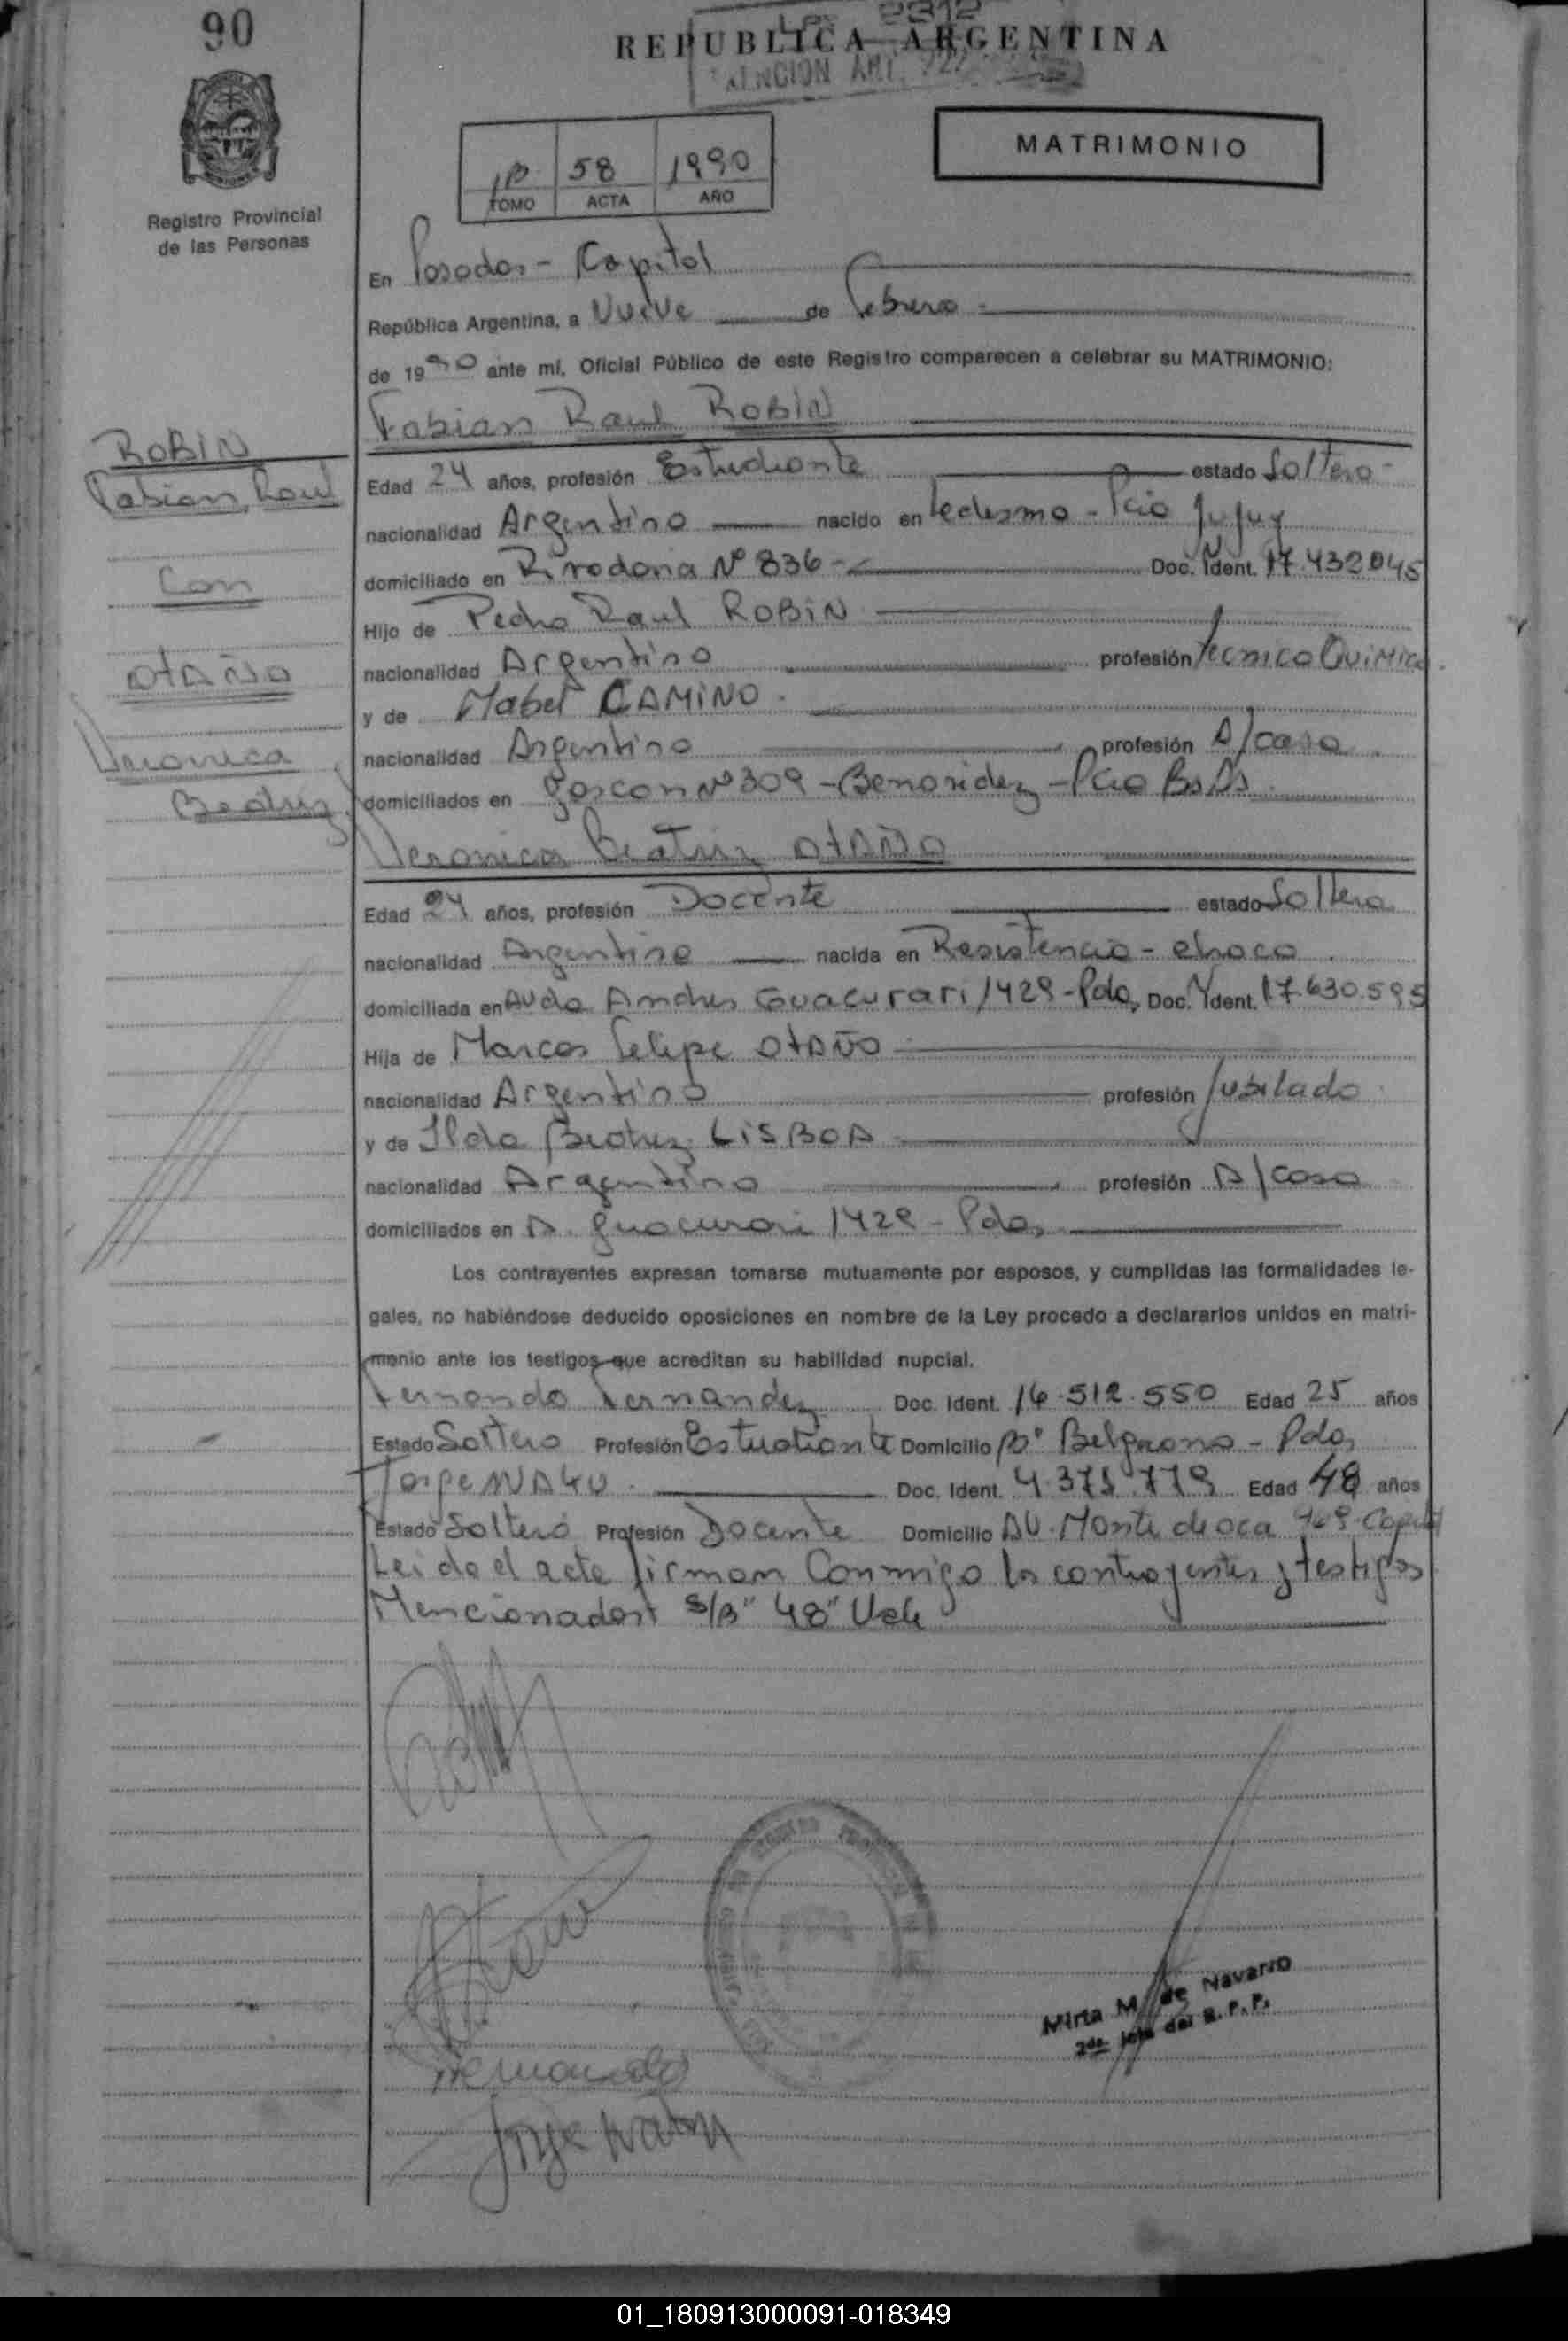 90
REPUBLICA ARGENTINA
2312
MATRIMONIO
58 1990
TOMO ACTA AÑO
Registro Provincial
de las Personas
En Posadas - Capital
República Argentina, a Nueve de Febrero -
de 1990 ante mí, Oficial Público de este Registro comparecen a celebrar su MATRIMONIO:
Fabian Raul ROBIN
ROBIN
Fabian Raul
Con
OtAÑO
Veronica
Beatriz
Edad 24 años, profesión Estudiante estado Soltero -
nacionalidad Argentino nacido en Ledesma - Pcia Jujuy
domiciliado en Rivadavia Nº 836 - Doc. Ident. 17.432045
Hijo de Pedro Raul ROBIN
nacionalidad Argentino profesión Tecnico Quimico
y de Mabel CAMINO
nacionalidad Argentina profesión A/casa
domiciliados en Gascon Nº 309 - Benavidez - Pcia Bs As
Veronica Beatriz OtAÑO
Edad 24 años, profesión Docente estado Soltera
nacionalidad Argentina nacida en Resistencia - chaco
domiciliada en Avda Andres Guacurari 1429 - Pdas, Doc. Ident. 17.630.595
Hija de Marcos Felipe OtAÑO
nacionalidad Argentino profesión Jubilado
y de Ilda Beatriz LISBOA
nacionalidad Argentina profesión A/casa
domiciliados en A. guacurari 1429 - Pdas,
Los contrayentes expresan tomarse mutuamente por esposos, y cumplidas las formalidades le-
gales, no habiéndose deducido oposiciones en nombre de la Ley procedo a declararlos unidos en matri-
monio ante los testigos que acreditan su habilidad nupcial.
Fernando Fernandez Doc. Ident. 16.512.550 Edad 25 años
Estado Soltero Profesión Estudiante Domicilio Bº Belgrano - Pdas,
Jorge Doc. Ident. 4.375.779 Edad 48 años
Estado Soltero Profesión Docente Domicilio AV. Monte de oca 969 Capital
Leido el acta firman Conmigo los contrayentes y testigos
Mencionados S/B" 48" Vale
Mirta M. de Navarro
2do Jefe del R.P.P.
01_180913000091-018349